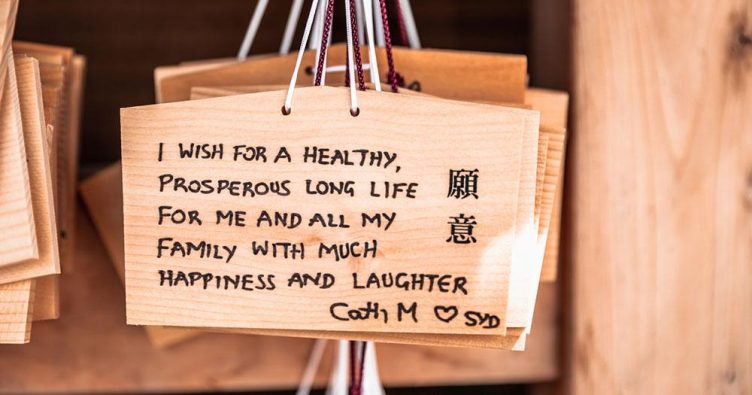 I WISH FOR A HEALTHY,
PROSPEROUS LONG LIFE
FOR ME AND ALL MY
FAMILY WITH MUCH
HAPPINESS AND LAUGHTER
Cathy M ♡ SYD
願意